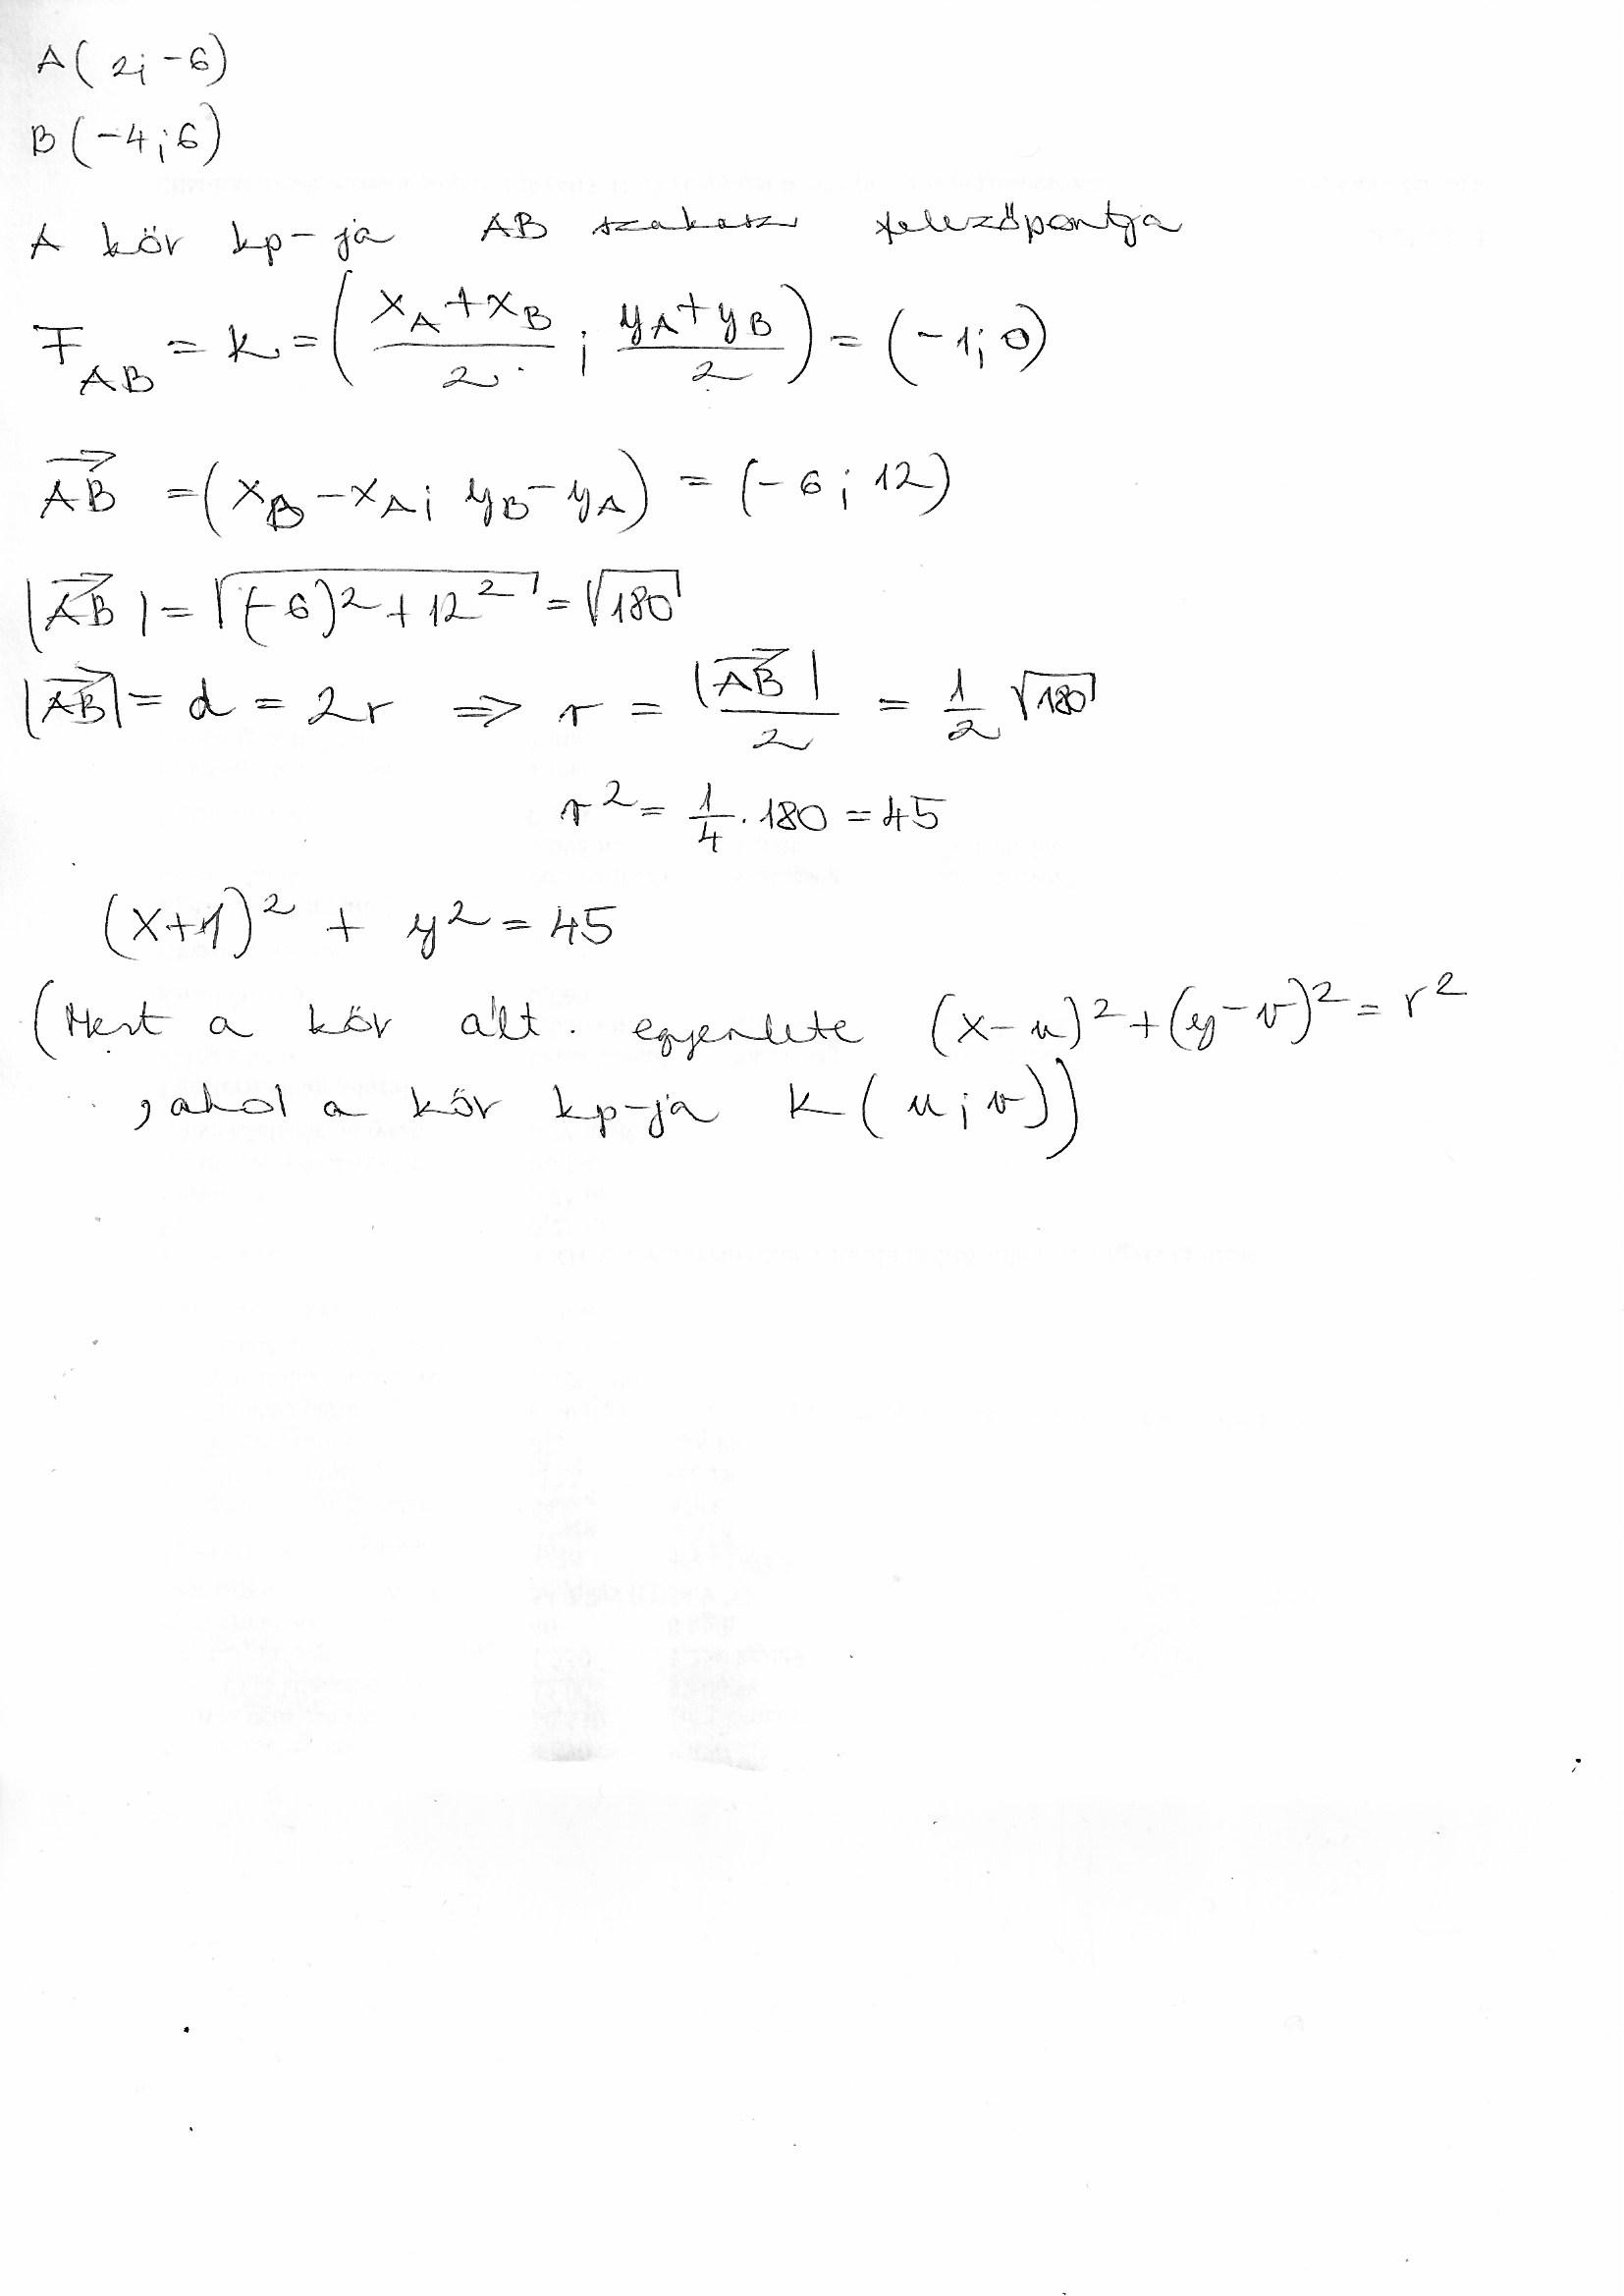 A(2; -6)
B(-4; 6)
A kör kp-ja AB szakasz felezőpontja
F_AB = K = ((x_A + x_B)/2 ; (y_A + y_B)/2) = (-1; 0)
AB→ = (x_B - x_A; y_B - y_A) = (-6; 12)
|AB→| = √((-6)² + 12²) = √180
|AB→| = d = 2r ⇒ r = |AB→|/2 = 1/2 √180
r² = 1/4 · 180 = 45
(x+1)² + y² = 45
(Mert a kör ált. egyenlete (x-u)² + (y-v)² = r²
, ahol a kör kp-ja K(u; v))